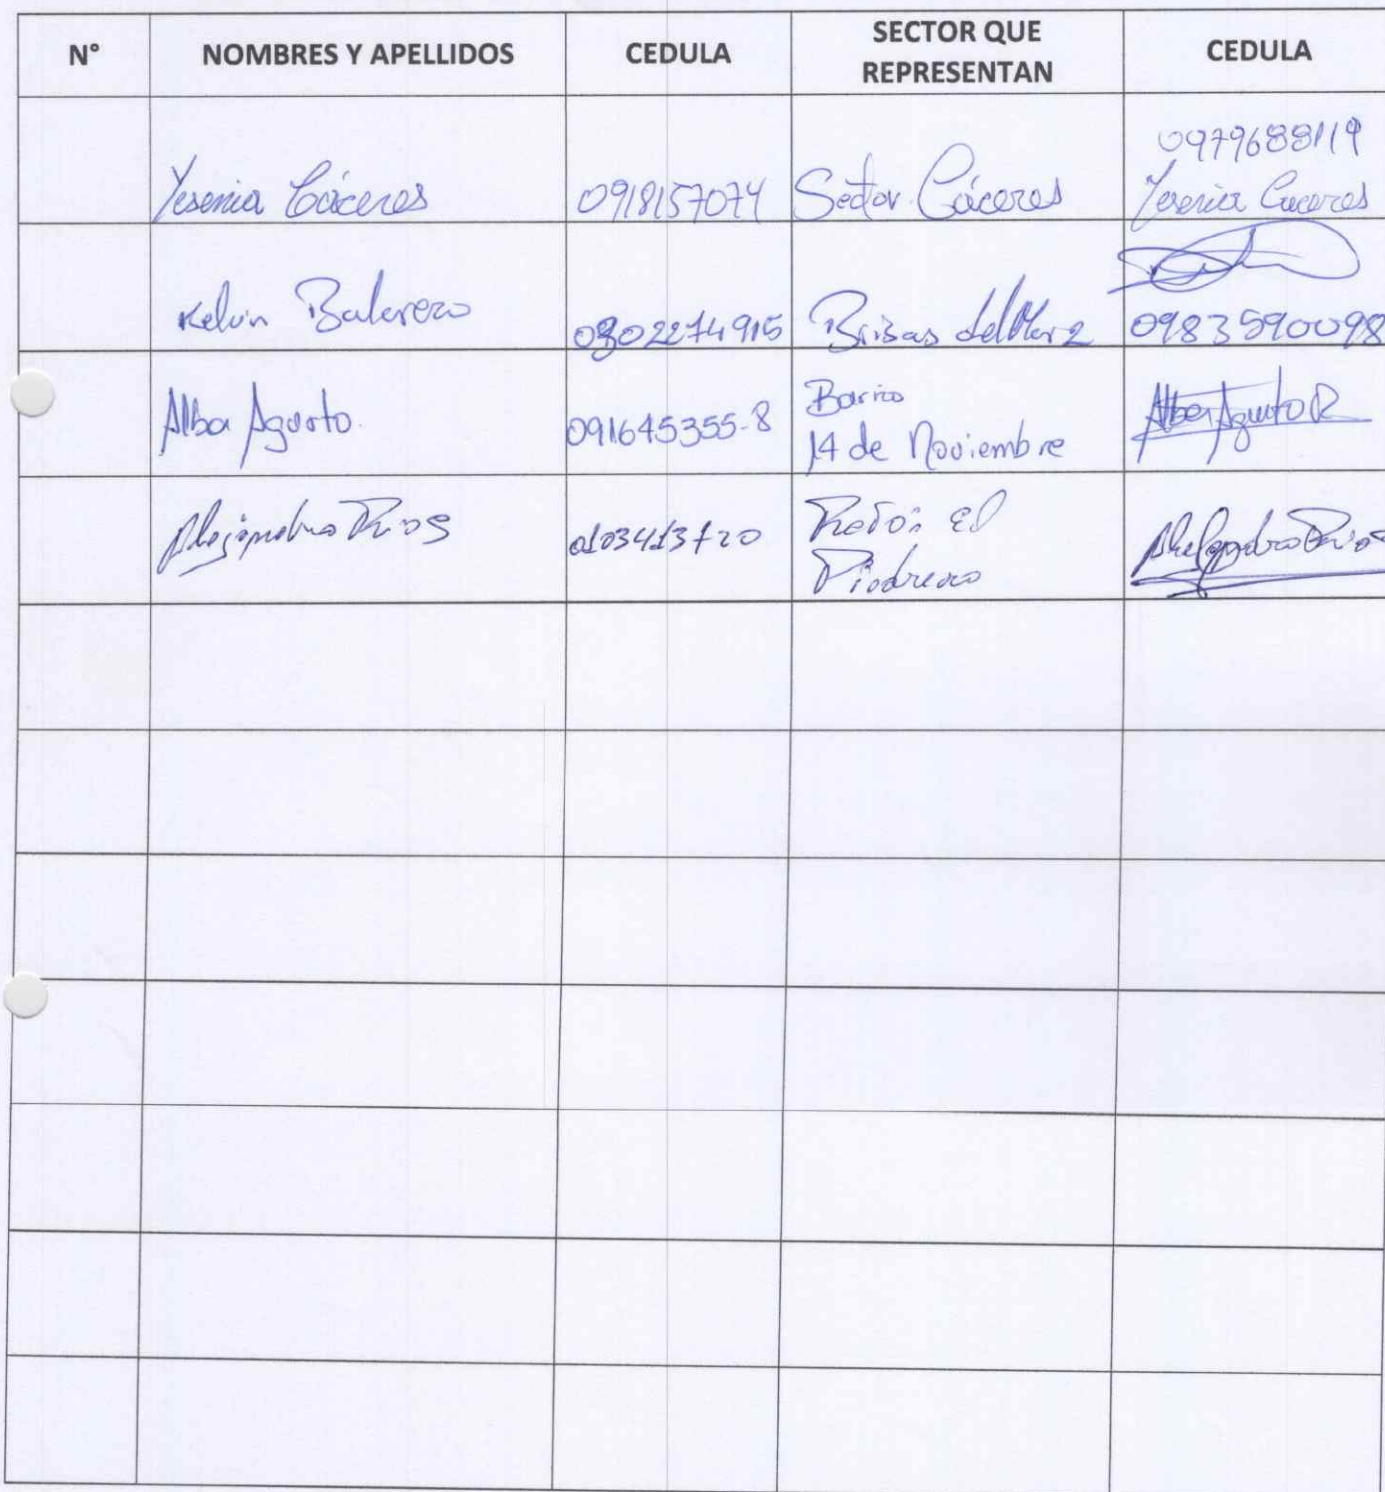 N° NOMBRES Y APELLIDOS CEDULA SECTOR QUE REPRESENTAN CEDULA
0979688119
Yesenia Cáceres 0918157074 Sector Cáceres Yesenia Caceres
Kelvin 0302274915 Brisas del Mar 2 0983590098
Alba Agurto. 091645355-8 Barrio
14 de Noviembre Alba Agurto R
Alejandro Rios 0103413720 El
Piedrero Alejandro Rios